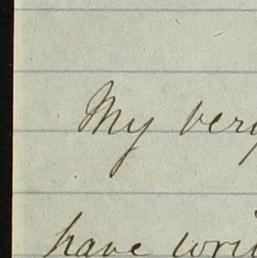 My very
have writ